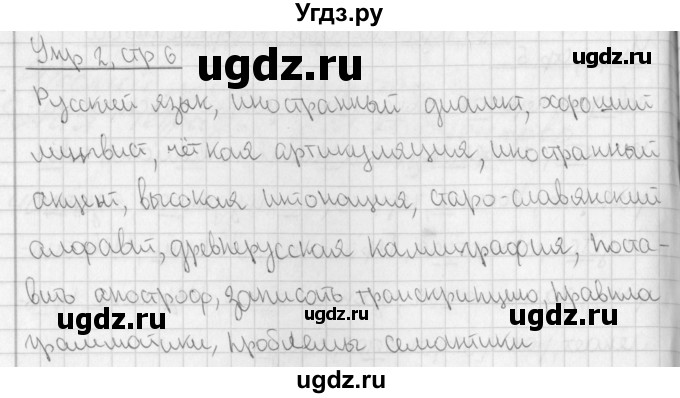 Угдз.ру
Упр 2, стр 6
ugdz.ru
Русский язык, иностранный диалект, хороший
лингвист, чёткая артикуляция, иностранный
ugdz.ru ugdz.ru
акцент, высокая интонация, старо-славянский
алфавит, древнерусская каллиграфия, поста-
вить апостроф, записать транскрипцию, правила
ugdz.ru ugdz.ru ugdz.ru
грамматики, проблемы семантики
ugdz.ru